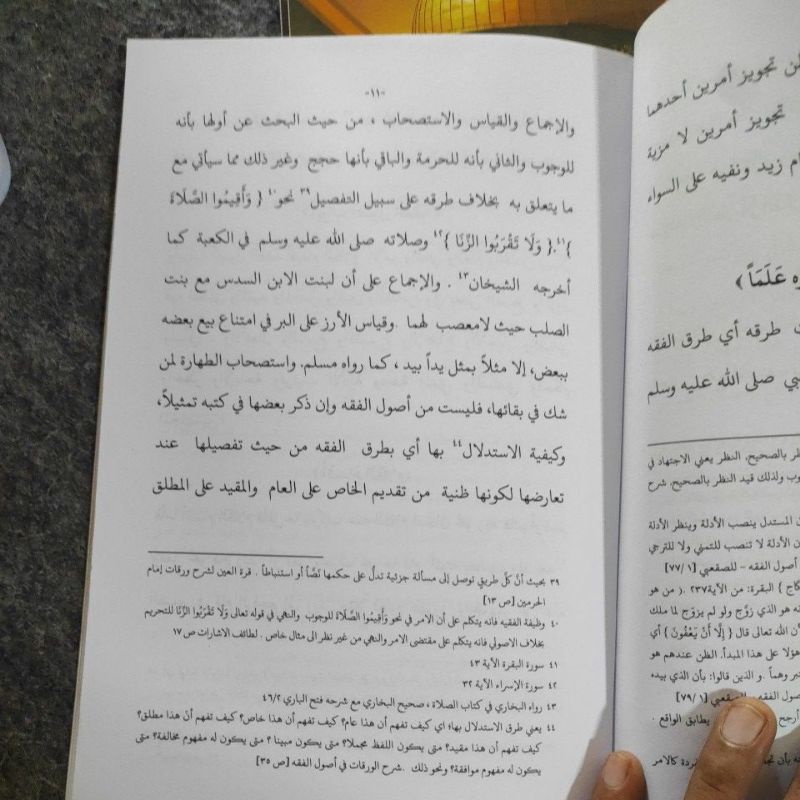 -١١-
والإجماع والقياس والاستصحاب ، من حيث البحث عن أولها بأنه
للوجوب والثاني بأنه للحرمة والباقي بأنها حجج وغير ذلك مما سيأتي مع
ما يتعلق به بخلاف طرقه على سبيل التفصيل٣٩ نحو٤٠ { وَأَقِيمُوا الصَّلَاةَ
}٤١.{ وَلَا تَقْرَبُوا الزِّنَا }٤٢ وصلاته صلى الله عليه وسلم في الكعبة كما
أخرجه الشيخان٤٣ . والإجماع على أن لبنت الابن السدس مع بنت
الصلب حيث لامعصب لهما .وقياس الأرز على البر في امتناع بيع بعضه
ببعض، إلا مثلاً بمثل يداً بيد ، كما رواه مسلم. واستصحاب الطهارة لمن
شك في بقائها، فليست من أصول الفقه وإن ذكر بعضها في كتبه تمثيلاً،
وكيفية الاستدلال٤٤ بها أي بطرق الفقه من حيث تفصيلها عند
تعارضها لكونها ظنية من تقديم الخاص على العام والمقيد على المطلق
٣٩ بحيث أنّ كلَّ طريقٍ توصل إلى مسألة جزئية تدلّ على حكمها نَصًّا أو استنباطاً . قرة العين لشرح ورقات إمام
الحرمين [ص ١٣]
٤٠ وظيفة الفقيه فانه يتكلم على أن الامر في نحو وَأَقِيمُوا الصَّلَاة للوجوب والنهي في قوله تعالى وَلَا تَقْرَبُوا الزِّنَا للتحريم
بخلاف الاصولي فانه يتكلم على مقتضى الامر والنهي من غير نظر الى مثال خاص . لطائف الاشارات ص ١٧
٤١ سورة البقرة الآية ٤٣
٤٢ سورة الإسراء الآية ٣٢
٤٣ رواه البخاري في كتاب الصلاة ، صحيح البخاري مع شرحه فتح الباري ٤٦/٢
٤٤ يعني طرق الاستدلال بهاء اي كيف تفهم أن هذا عام؟ كيف تفهم أن هذا خاص؟ كيف تفهم أنّ هذا مطلق؟
كيف تفهم أن هذا مقيد؟ متى يكون اللفظ مجملا؟ متى يكون مبينا ؟ متى يكون له مفهوم مخالفة؟ متى
يكون له مفهوم موافقة؟ ونحو ذلك .شرح الورقات في أصول الفقه [ص ٣٥]
ظن تجويز أمرين أحدهما
تجويز أمرين لا مزية
م زيد ونفيه على السواء
ه عَلَمَاً ﴾
طرقه أي طرق الفقه
بي صلى الله عليه وسلم
ظر بالصحيح. النظر يعني الاجتهاد في
وب ولذلك قيد النظر بالصحيح. شرح
المستدل ينصب الأدلة وينظر الأدلة
ن الأدلة لا تنصب للتمني ولا للترجي
أصول الفقه - للصقعبي [١ /٧٧]
كاح } البقرة: من الآية٢٣٧ .( من هو
ه هو الذي زوَّج ولو لم يزوّج لما ملك
أن الله تعالى قال { إِلَّا أَنْ يَعْفُونَ } أي
هؤلا على هذا المبدأ. الظن عندهم هو
بر وهماً .و الذين قالوا: بأن الذي بيده
صول الفقه - للصقعبي [١ /٧٩]
أرجح
يطابق الواقع .
ردة كالامر